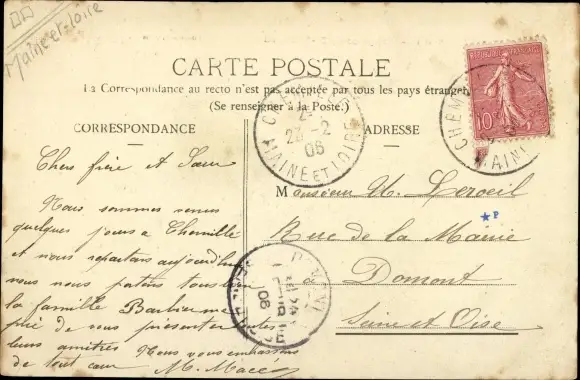 Maine-et-Loire
CARTE POSTALE
La Correspondance au recto n'est pas acceptée par tous les pays étrangers
(Se renseigner à la Poste.)
CORRESPONDANCE
ADRESSE
REPUBLIQUE FRANÇAISE
10
CHEM
23-2
06
MAINE ET LOIRE
CHEM
MAINE
Chers frère et Sœur
Nous sommes venus
quelques jours à Chemillé
et nous repartons aujourd'hui
nous nous portons tous bien
la famille Barbier me
prie de vous présenter
leurs amitiés Nous vous embrassons
de tout cœur M. Macé
Monsieur U. Leroeil
Rue de la Mairie
Domont
Seine et Oise
P
06